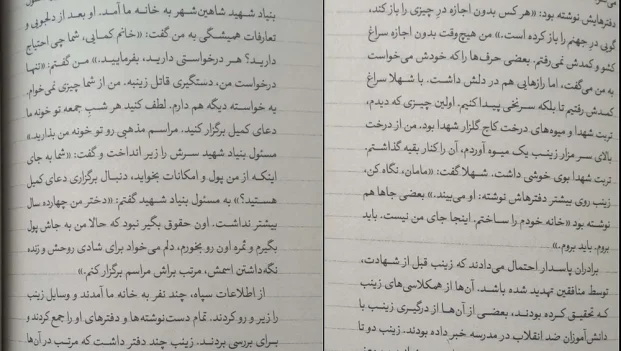 دفترهایش نوشته بود: «هر کس بدون اجازه درِ چیزی را باز کند،
گویی درِ جهنم را باز کرده است.» من هیچ‌وقت بدون اجازه سراغ
کشو و کمدش نمی‌رفتم. بعضی حرف‌ها را که خودش می‌خواست
به من می‌گفت، اما رازهایی هم در دلش داشت. با شهلا سراغ
کمدش رفتیم تا بلکه سرنخی پیدا کنیم. اولین چیزی که دیدم،
تربت شهدا و میوه‌های درخت کاج گلزار شهدا بود. من از درخت
بالای سر مزار زینب یک میوه آوردم، آن را کنار بقیه گذاشتم.
تربت شهدا بوی خوشی داشت. شهلا گفت: «مامان، نگاه کن،
زینب روی بیشتر دفترهاش نوشته: او می‌بیند.» بعضی جاها هم
نوشته بود «خانه خودم را ساختم. اینجا جای من نیست. باید
بروم. باید بروم.»
برادران پاسدار احتمال می‌دادند که زینب قبل از شهادت،
توسط منافقین تهدید شده باشد. آن‌ها از همکلاسی‌های زینب
که تحقیق کرده بودند، بعضی از آن‌ها از درگیری زینب با
دانش‌آموزان ضد انقلاب در مدرسه خبر داده بودند. زینب دو تا
بنیاد شهید شاهین‌شهر به خانه ما آمد. او بعد از دلجویی و
تعارفات همیشگی به من گفت: «خانم کمایی، شما چی احتیاج
دارید؟ هر درخواستی دارید، بفرمایید.» من گفتم: «تنها
درخواست من، دستگیری قاتل زینبه. من از شما چیزی نمی‌خوام.
یه خواسته دیگه هم دارم. لطف کنید هر شبِ جمعه تو خونه ما
دعای کمیل برگزار کنید. مراسم مذهبی رو تو خونه من بذارید.»
مسئول بنیاد شهید سرش را زیر انداخت و گفت: «شما به جای
اینکه از من پول و امکانات بخواید، دنبال برگزاری دعای کمیل
هستید؟» به مسئول بنیاد شهید گفتم: «دختر من چهارده سال
بیشتر نداشت. اون حقوق بگیر نبود که حالا من به جاش پول
بگیرم و ثمره اون رو بخورم، دلم می‌خواد برای شادی روحش و زنده
نگه‌داشتن اسمش، مرتب براش مراسم برگزار کنم.»
از اطلاعات سپاه، چند نفر به خانه ما آمدند و وسایل زینب
را زیر و رو کردند. تمام دست‌نوشته‌ها و دفترهای او را جمع کردند و
برای بررسی بردند. زینب چند دفتر داشت که مرتب در آن‌ها